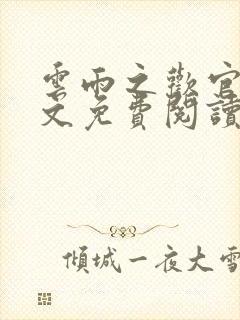 雲雨之歡官
文免費閱讀
傾城一夜大雪